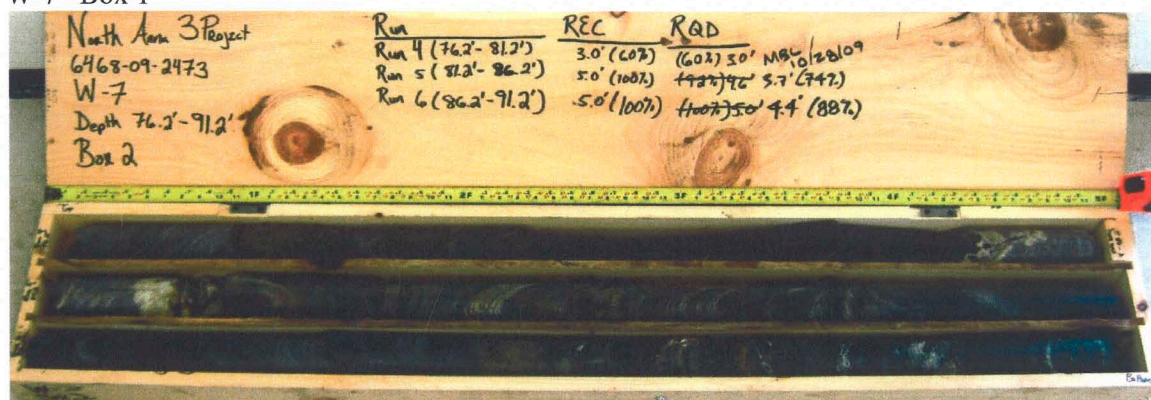 W-7 Box 1
North Arm 3 Project
6468-09-2473
W-7
Depth 76.2'-91.2'
Box 2
Run REC RQD
Run 4 (76.2'-81.2') 3.0' (60%) (60%) 3.0' MBL 10/28/09
Run 5 (81.2'-86.2') 5.0' (100%) (92%) 4.6' 3.7' (74%)
Run 6 (86.2'-91.2') 5.0' (100%) (100%) 5.0' 4.4' (88%)
1F 2F 3F 4F 5F